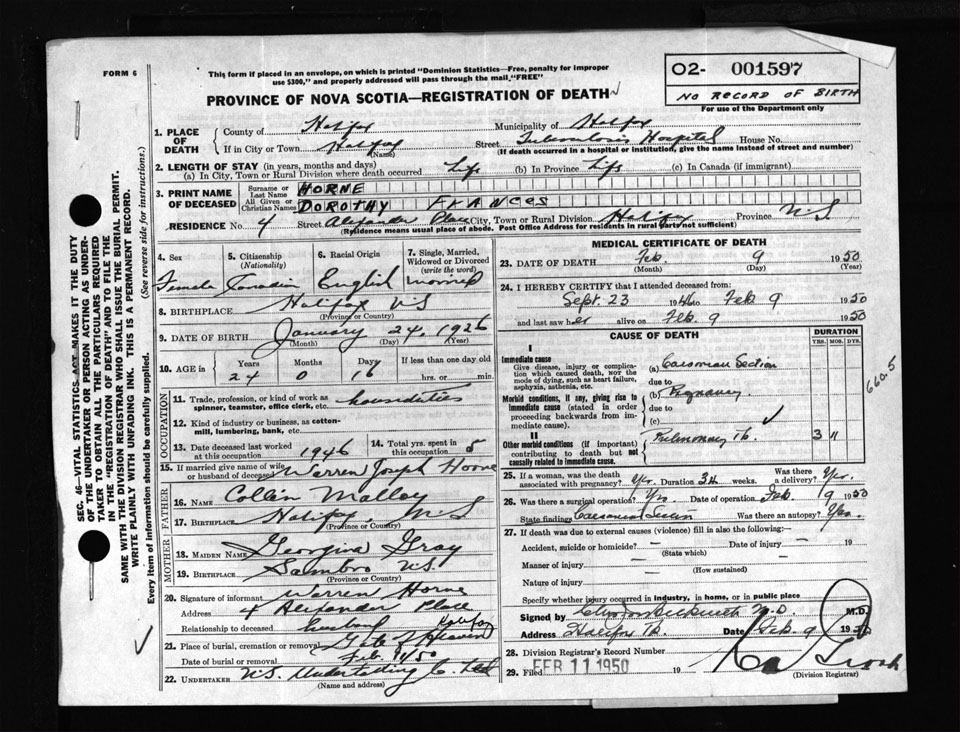 FORM 6
This form if placed in an envelope, on which is printed "Dominion Statistics—Free, penalty for improper
use $300," and properly addressed will pass through the mail "FREE"
PROVINCE OF NOVA SCOTIA—REGISTRATION OF DEATH
02- 001597
NO RECORD OF BIRTH
For use of the Department only
SEC. 46—VITAL STATISTICS ACT MAKES IT THE DUTY
OF THE UNDERTAKER OR PERSON ACTING AS UNDER-
TAKER TO OBTAIN ALL THE PARTICULARS REQUIRED
IN THE "REGISTRATION OF DEATH" AND TO FILE THE
SAME WITH THE DIVISION REGISTRAR WHO SHALL ISSUE THE BURIAL PERMIT.
WRITE PLAINLY WITH UNFADING INK. THIS IS A PERMANENT RECORD.
Every item of information should be carefully supplied. (See reverse side for instructions.)
1. PLACE OF DEATH County of Halifax Municipality of Halifax
If in City or Town Halifax (Name) Street Hospital House No.
(If death occurred in a hospital or institution, give the name instead of street and number)
2. LENGTH OF STAY (in years, months and days)
(a) In City, Town or Rural Division where death occurred Life (b) In Province Life (c) In Canada (if immigrant)
3. PRINT NAME OF DECEASED Surname or Last Name HORNE
All Given or Christian Names DOROTHY FRANCES
RESIDENCE No. 4 Street Alexander Place City, Town or Rural Division Halifax Province N.S.
(Residence means usual place of abode. Post Office Address for residents in rural parts not sufficient)
4. Sex Female
5. Citizenship (Nationality) Canadian
6. Racial Origin English
7. Single, Married, Widowed or Divorced (write the word) married
8. BIRTHPLACE Halifax N S
(Province or Country)
9. DATE OF BIRTH January 24, 1926
(Month) (Day) (Year)
10. AGE in Years 24 Months 0 Days 16 If less than one day old hrs. or min.
OCCUPATION
11. Trade, profession, or kind of work as spinner, teamster, office clerk, etc. houseduties
12. Kind of industry or business, as cotton-mill, lumbering, bank, etc.
13. Date deceased last worked at this occupation 1946 14. Total yrs. spent in this occupation 5
15. If married give name of wife or husband of deceased Warren Joseph Horne
FATHER
16. NAME Collin Malloy
17. BIRTHPLACE Halifax N.S
(Province or Country)
MOTHER
18. MAIDEN NAME Georgina Gray
19. BIRTHPLACE Sambro N.S
(Province or Country)
20. Signature of informant Warren Horne
Address 4 Alexander Place Halifax
Relationship to deceased husband
21. Place of burial, cremation or removal Gate of Heaven
Date of burial or removal Feb 11/50
22. UNDERTAKER N.S. Undertaking Co. Ltd
(Name and address)
MEDICAL CERTIFICATE OF DEATH
23. DATE OF DEATH Feb. 9 1950
(Month) (Day) (Year)
24. I HEREBY CERTIFY that I attended deceased from:
Sept. 23 1946 to Feb 9 1950
and last saw her alive on Feb 9 1950
CAUSE OF DEATH DURATION
YRS. MOS. DYS.
I
Immediate cause
Give disease, injury or complication which caused death, NOT the mode of dying, such as heart failure, asphyxia, asthenia, etc. (a) Caesarean Section
due to
Morbid conditions, if any, giving rise to immediate cause (stated in order proceeding backwards from immediate cause). (b) Pregnancy
due to
(c)
II
Other morbid conditions (if important) contributing to death but not causally related to immediate cause. Pulmonary Tb. 3 11
660.5
25. If a woman, was the death associated with pregnancy? Yes. Duration 34 weeks. Was there a delivery? Yes.
26. Was there a surgical operation? Yes Date of operation Feb. 9 1950
State findings Caesarean Section Was there an autopsy? Yes.
27. If death was due to external causes (violence) fill in also the following:—
Accident, suicide or homicide? — Date of injury — 19
(State which)
Manner of injury —
(How sustained)
Nature of injury —
Specify whether injury occurred in industry, in home, or in public place
Signed by Beckwith M.D. M.D.
Address Halifax Date Feb. 9 1950
28. Division Registrar's Record Number
29. Filed FEB 11 1950 19
(Division Registrar)